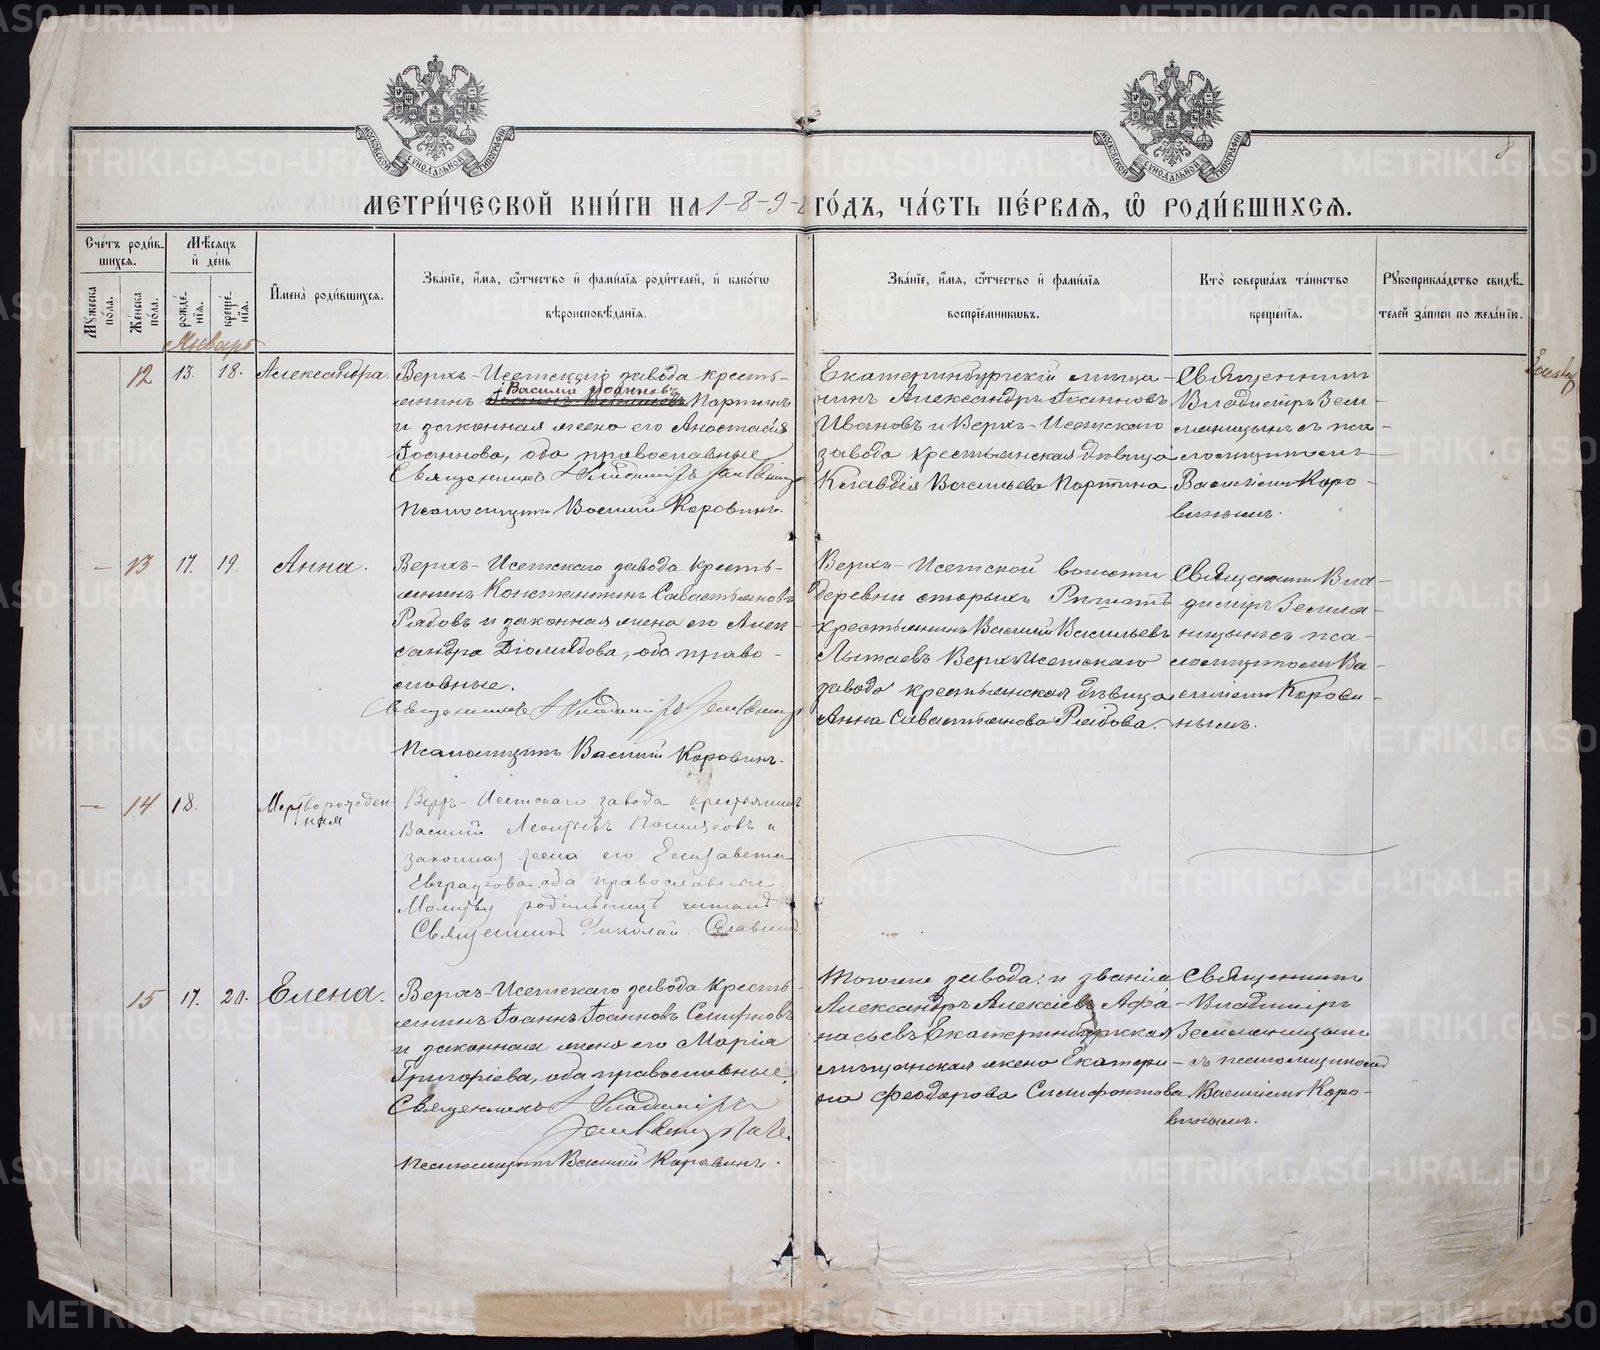 МЕТРИ́ЧЕСКОЙ КНИ́ГИ НА 1-8-9- ГО́ДЪ, ЧА́СТЬ ПЕ́РВАЯ, Ѽ РОДИ́ВШИХСЯ.
8
Сче́тъ роди́в-
шихся.
Мѣ́сяцъ
и де́нь
Му́жеска по́ла.
Же́нска по́ла.
рожде́нія.
креще́нія.
Имена̀ роди́вшихся.
Зва́ніе, и́мя, ѻ́тчество и фами́лія роди́телей, и како́гѡ
вѣроисповѣ́данія.
Зва́ніе, и́мя, ѻ́тчество и фами́лія
воспріе́мниковъ.
Кто̀ соверша́лъ та́инство
креще́нія.
Рꙋкоприкла́дство свидѣ́-
телей за́писи по жела́нію.
Январь
12 13. 18. Александра.
Верхъ-Исетскаго завода кресть-
Василій Іоанновъ
янинъ Партинъ
и законная жена его Анастасія
Іоаннова, оба православные
Священникъ Владиміръ Земляницынъ
Псаломщикъ Василий Коровинъ.
Екатеринбургскій мѣща-
нинъ Александръ Іоанновъ
Ивановъ и Верхъ-Исетскаго
завода крестьянская дѣвица
Клавдія Васильева Партина
Священникъ
Владиміръ Зем-
ляницынъ съ пса-
ломщикомъ
Василіемъ Коро-
винымъ.
— 13 17. 19. Анна.
Верхъ-Исетскаго завода кресть-
янинъ Константинъ Савастьяновъ
Рябовъ и законная жена его Алек-
сандра Діомидова, оба право-
славные.
Священникъ Владиміръ Земляницынъ
Псаломщикъ Василий Коровинъ.
Верхъ-Исетской волости
деревни
крестьянинъ Василий Васильевъ
Лытаевъ Верхъ-Исетскаго
завода крестьянская дѣвица
Анна Савастьянова Рябова.
Священникъ Вла-
диміръ Земля-
ницынъ съ пса-
ломщикомъ Ва-
силіемъ Корови-
нымъ.
— 14 18. Мертворожден-
ная
Верхъ-Исетскаго завода крестьянинъ
Василий Леонтьевъ и
законная жена его Елизавета
Евграфова, оба православные.
Молитву родильницѣ читалъ
Священникъ Николай
15 17. 20. Елена.
Верхъ-Исетскаго завода кресть-
янинъ Іоаннъ Іоанновъ
и законная жена его Марія
Григоріева, оба православные.
Священникъ Владиміръ
Земляницынъ.
Псаломщикъ Василий Коровинъ.
Тогоже завода и званія
Александръ Алексіевъ Афа-
насьевъ Екатеринбургская
мѣщанская жена Екатери-
на Феодорова
Священникъ
Владиміръ
Земляницынъ
съ псаломщикомъ
Василіемъ Коро-
винымъ.
METRIKI.GASO-URAL.RU